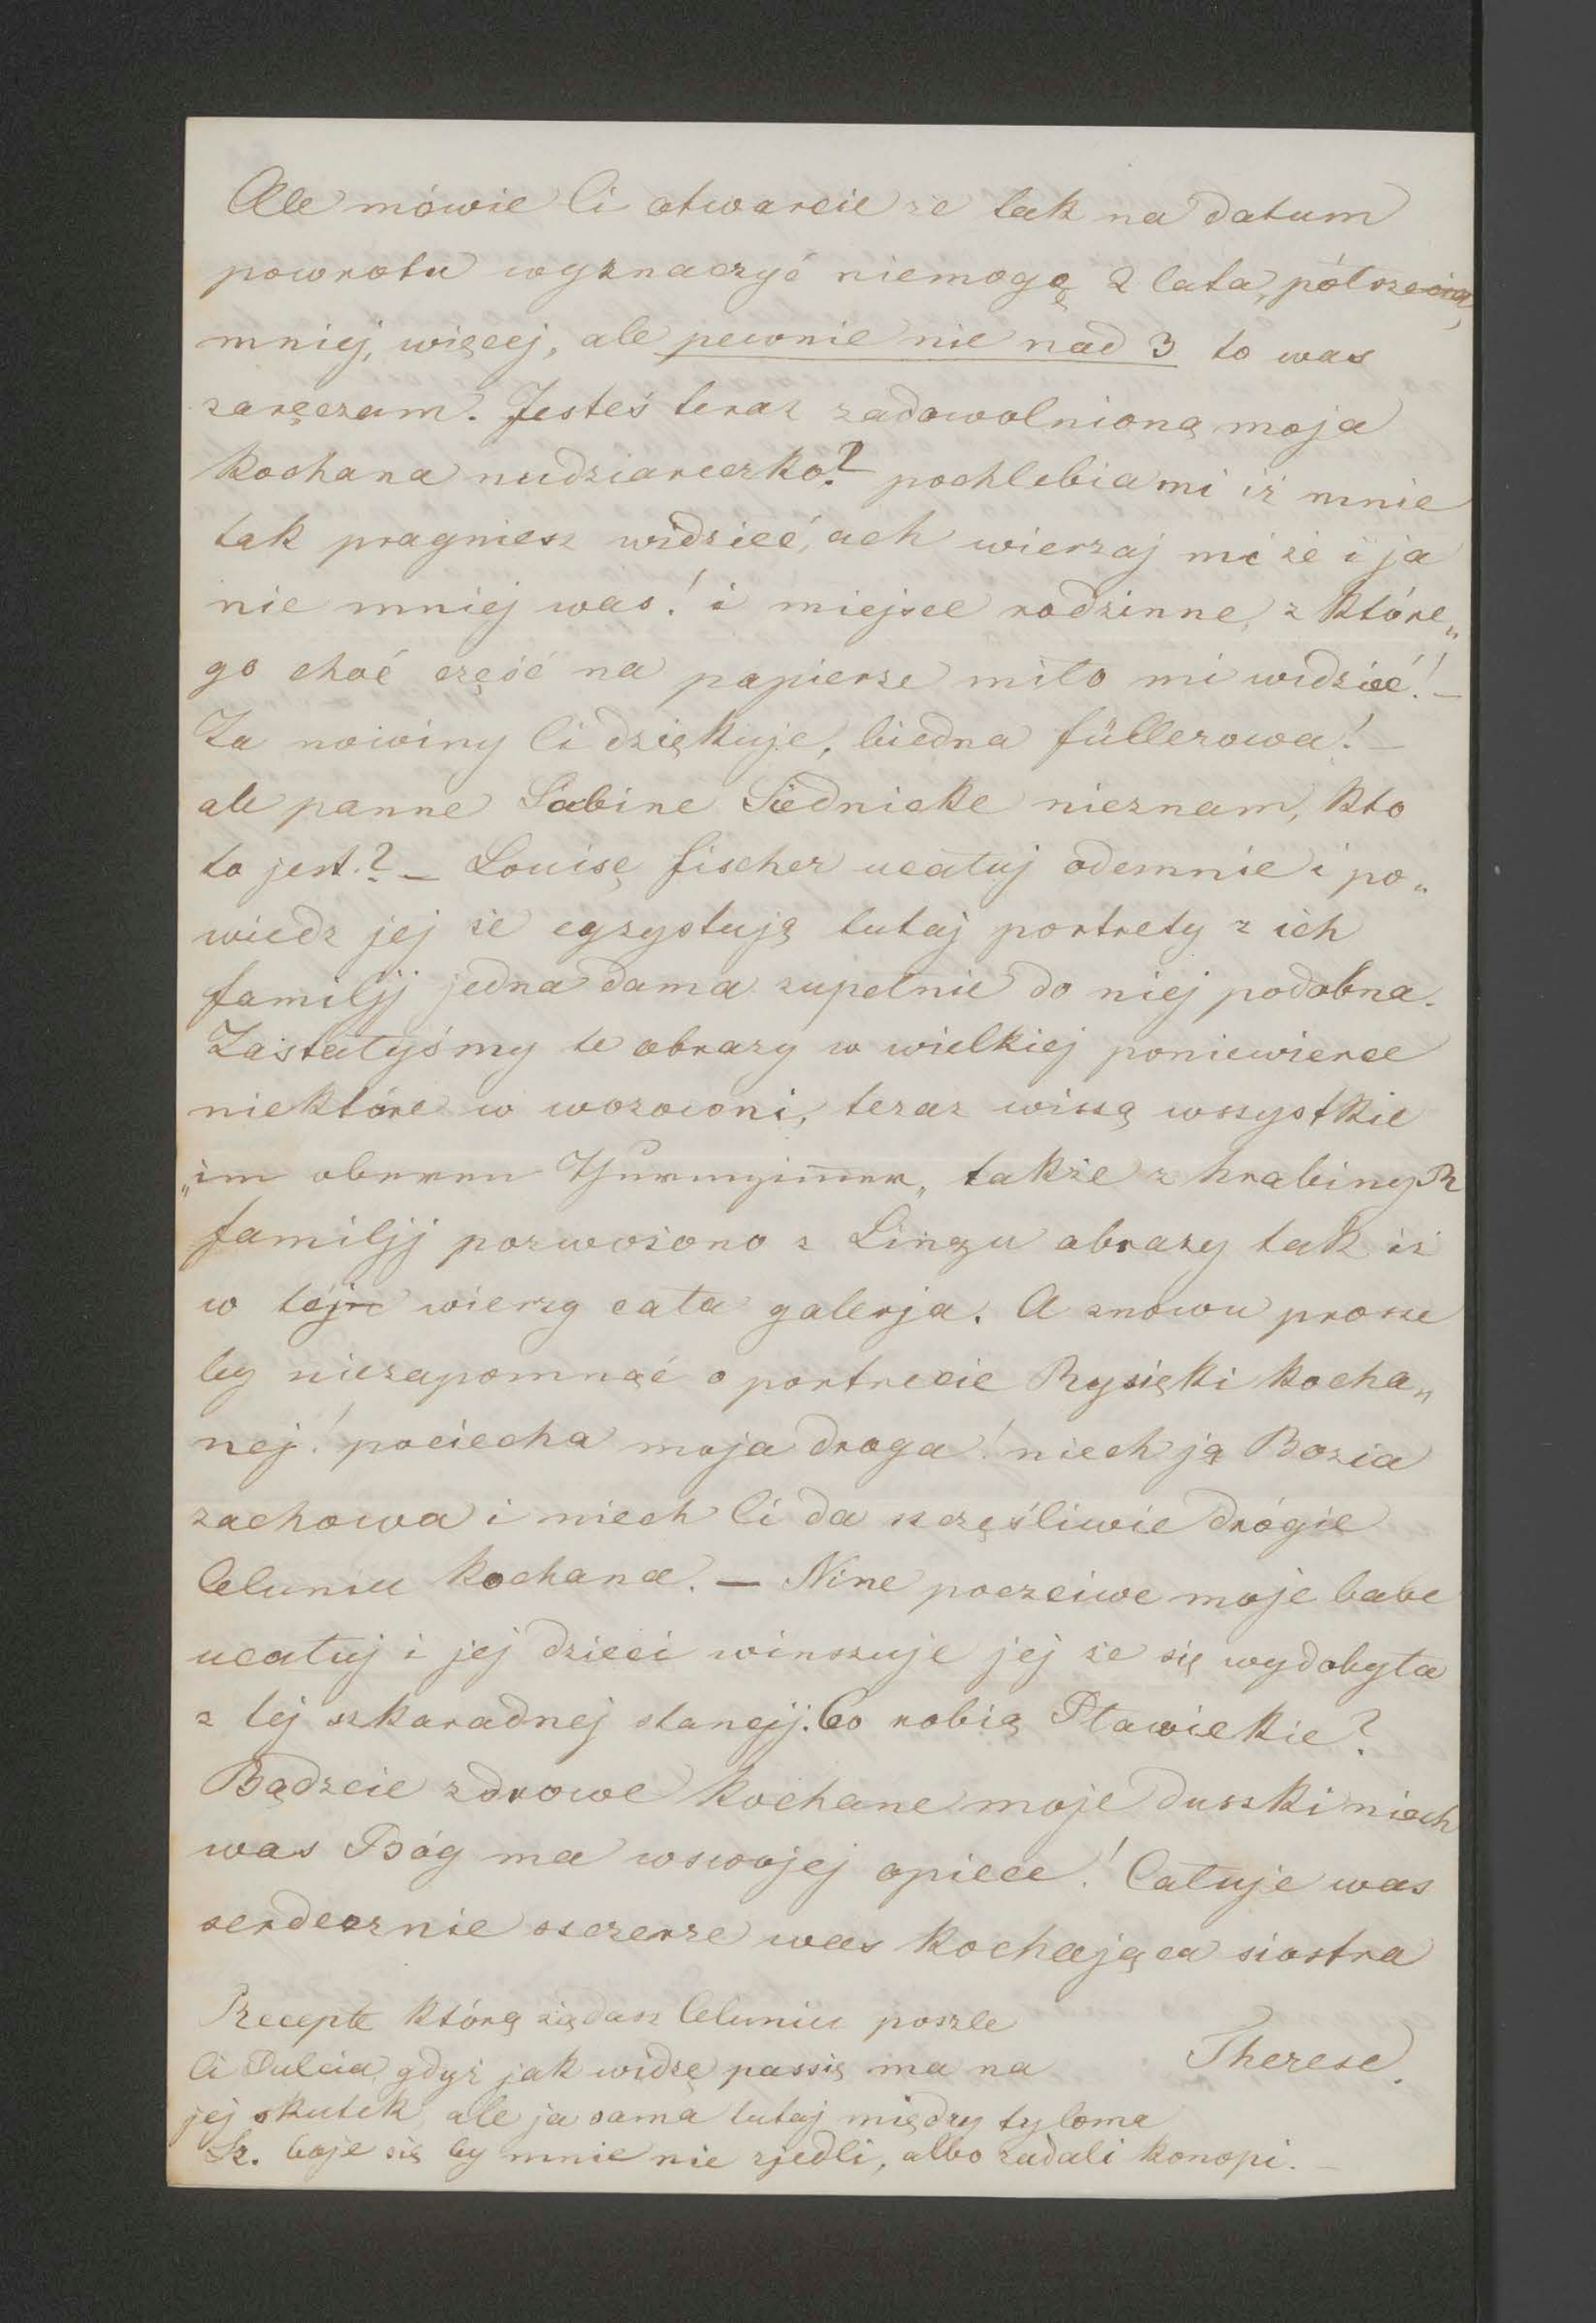 Ale mówie Ci otwarcie ze tak na datum
powrotu wyznaczyć niemogę 2 lata, półrzecia,
mniej, więcej, ale pewnie nie nad 3 to was
zaręczam. Jesteś teraz zadowolnioną moja
kochana nudziareczko? pochlebia mi iż mnie
tak pragniesz widzieć, ach wierzaj mi że i ja
nie mniej was! i miejsce rodzinne, z które„
go choć część na papierze miło mi widzieć! –
Za nowiny Ci dziękuje, biedna füllerowa! –
ale panne Sabine Siednicke nieznam, kto
to jest? – Louisę fischer ucałuj odemnie i po„
wiedz jej że egzystują tutaj portrety z ich
familji jedna dama zupełnie do niej podobna.
Zastałyśmy te obrazy w wielkiej poniewierce
niektóre w wozowni, teraz wiszą wszystkie
„im oberen Thurmzimmer„ takze z hrabiny R
familji pozwożono z Linzu obrazy tak iż
w tej wierzy cała galerja. A znowu prosze
by niezapomnąć o portrecie Rysięki kocha„
nej! pociecha moja droga! niech ją Bozia
zachowa i niech Ci da szczęśliwie drógie
Celuniu kochana. — Nine poczciwe moje babe
ucałuj i jej dzieci winszuje jej że się wydobyła
z tej szkaradnej stancji. Co robią Pławickie?
Bądzcie zdrowe kochane moje duszki niech
was Bóg ma wswojej opiece! Całuje was
serdecznie szczerze was kochająca siostra
Recepte którą żądasz Celuniu poszle
Ci Dulcia, gdyż jak widzę passię ma na
Therese.
jej skutek, ale ja sama tutaj między tyloma
Sz. boje się by mnie nie zjedli, albo zadali konopi. –